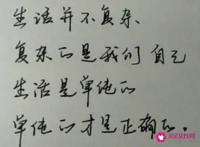 生活并不复杂
复杂的是我们自己
生活是单纯的
单纯的才是正确的.